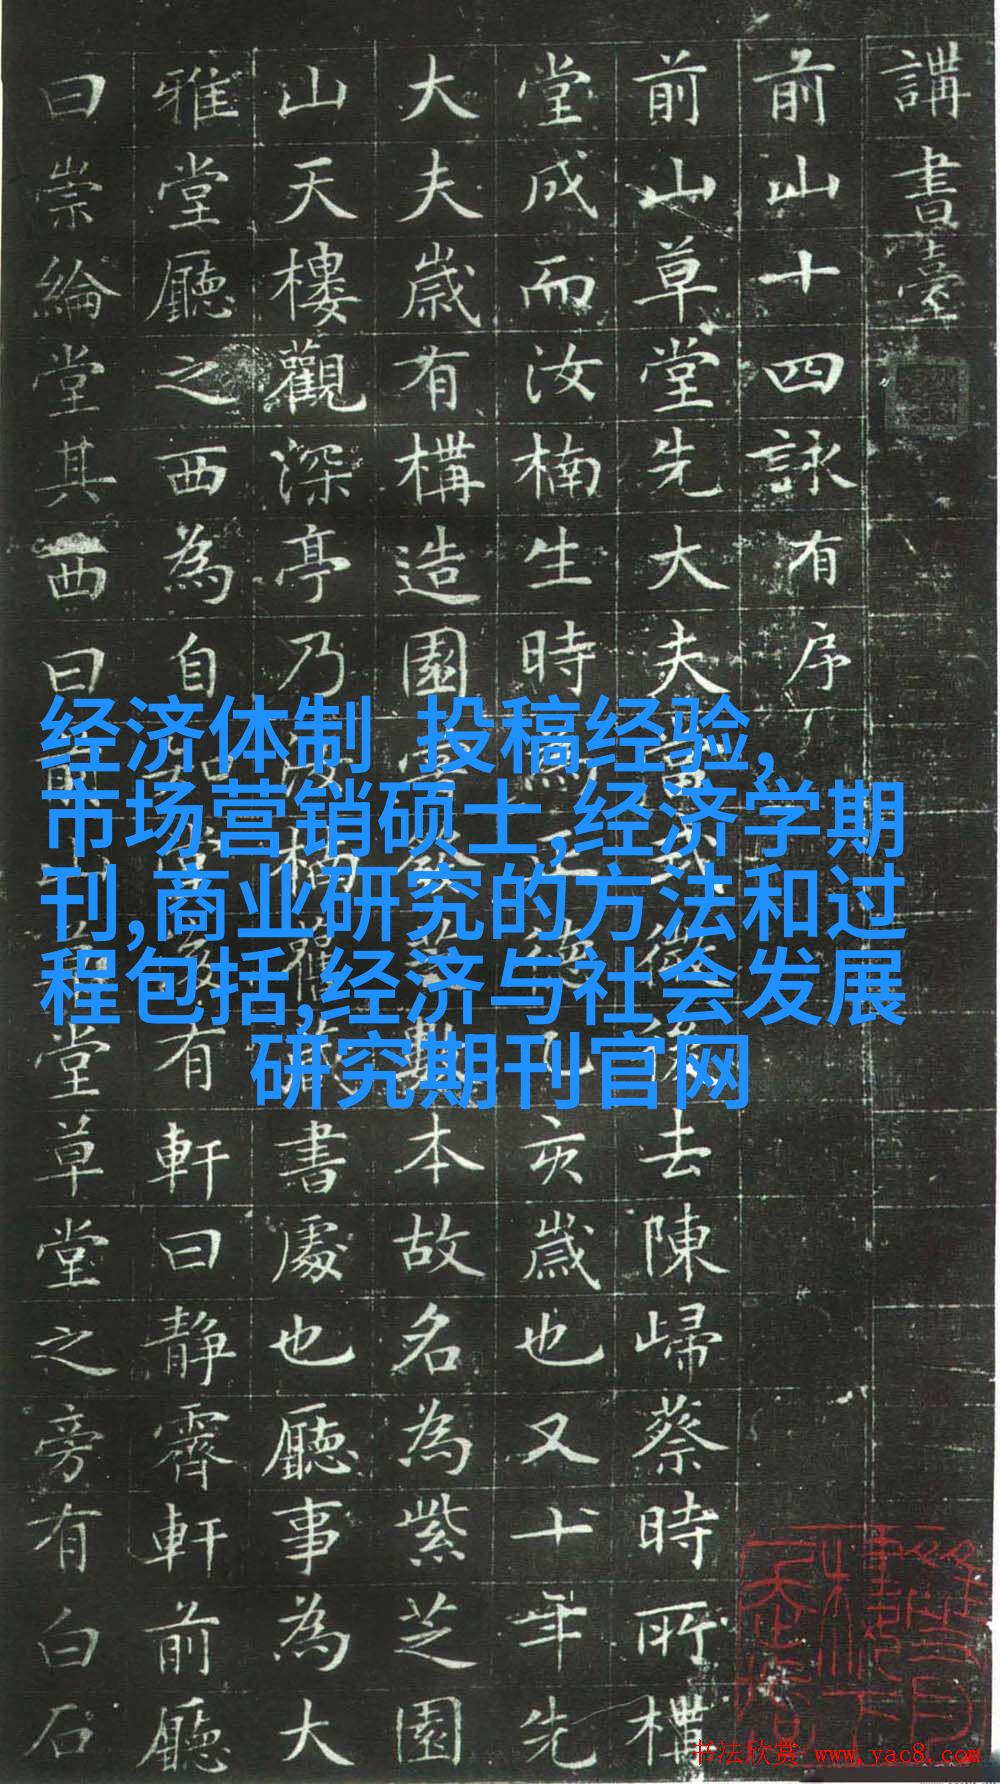 講書臺
前山十四詠有序
前山草堂先大夫後去陳歸蔡時所
堂成而汝楠生時正亥歲也又十年先
大夫歲有構造園本故名為紫芝園
山天樓觀深亭乃汝楠舊藏書處也廳事為大
雅堂廳之西為自有軒曰靜霽軒前廳
曰崇綸堂其西曰前山草堂草堂之旁有白石
经济体制 投稿经验,
市场营销硕士,经济学期
刊,商业研究的方法和过
程包括,经济与社会发展
研究期刊官网
书法欣赏 www.yac8.com